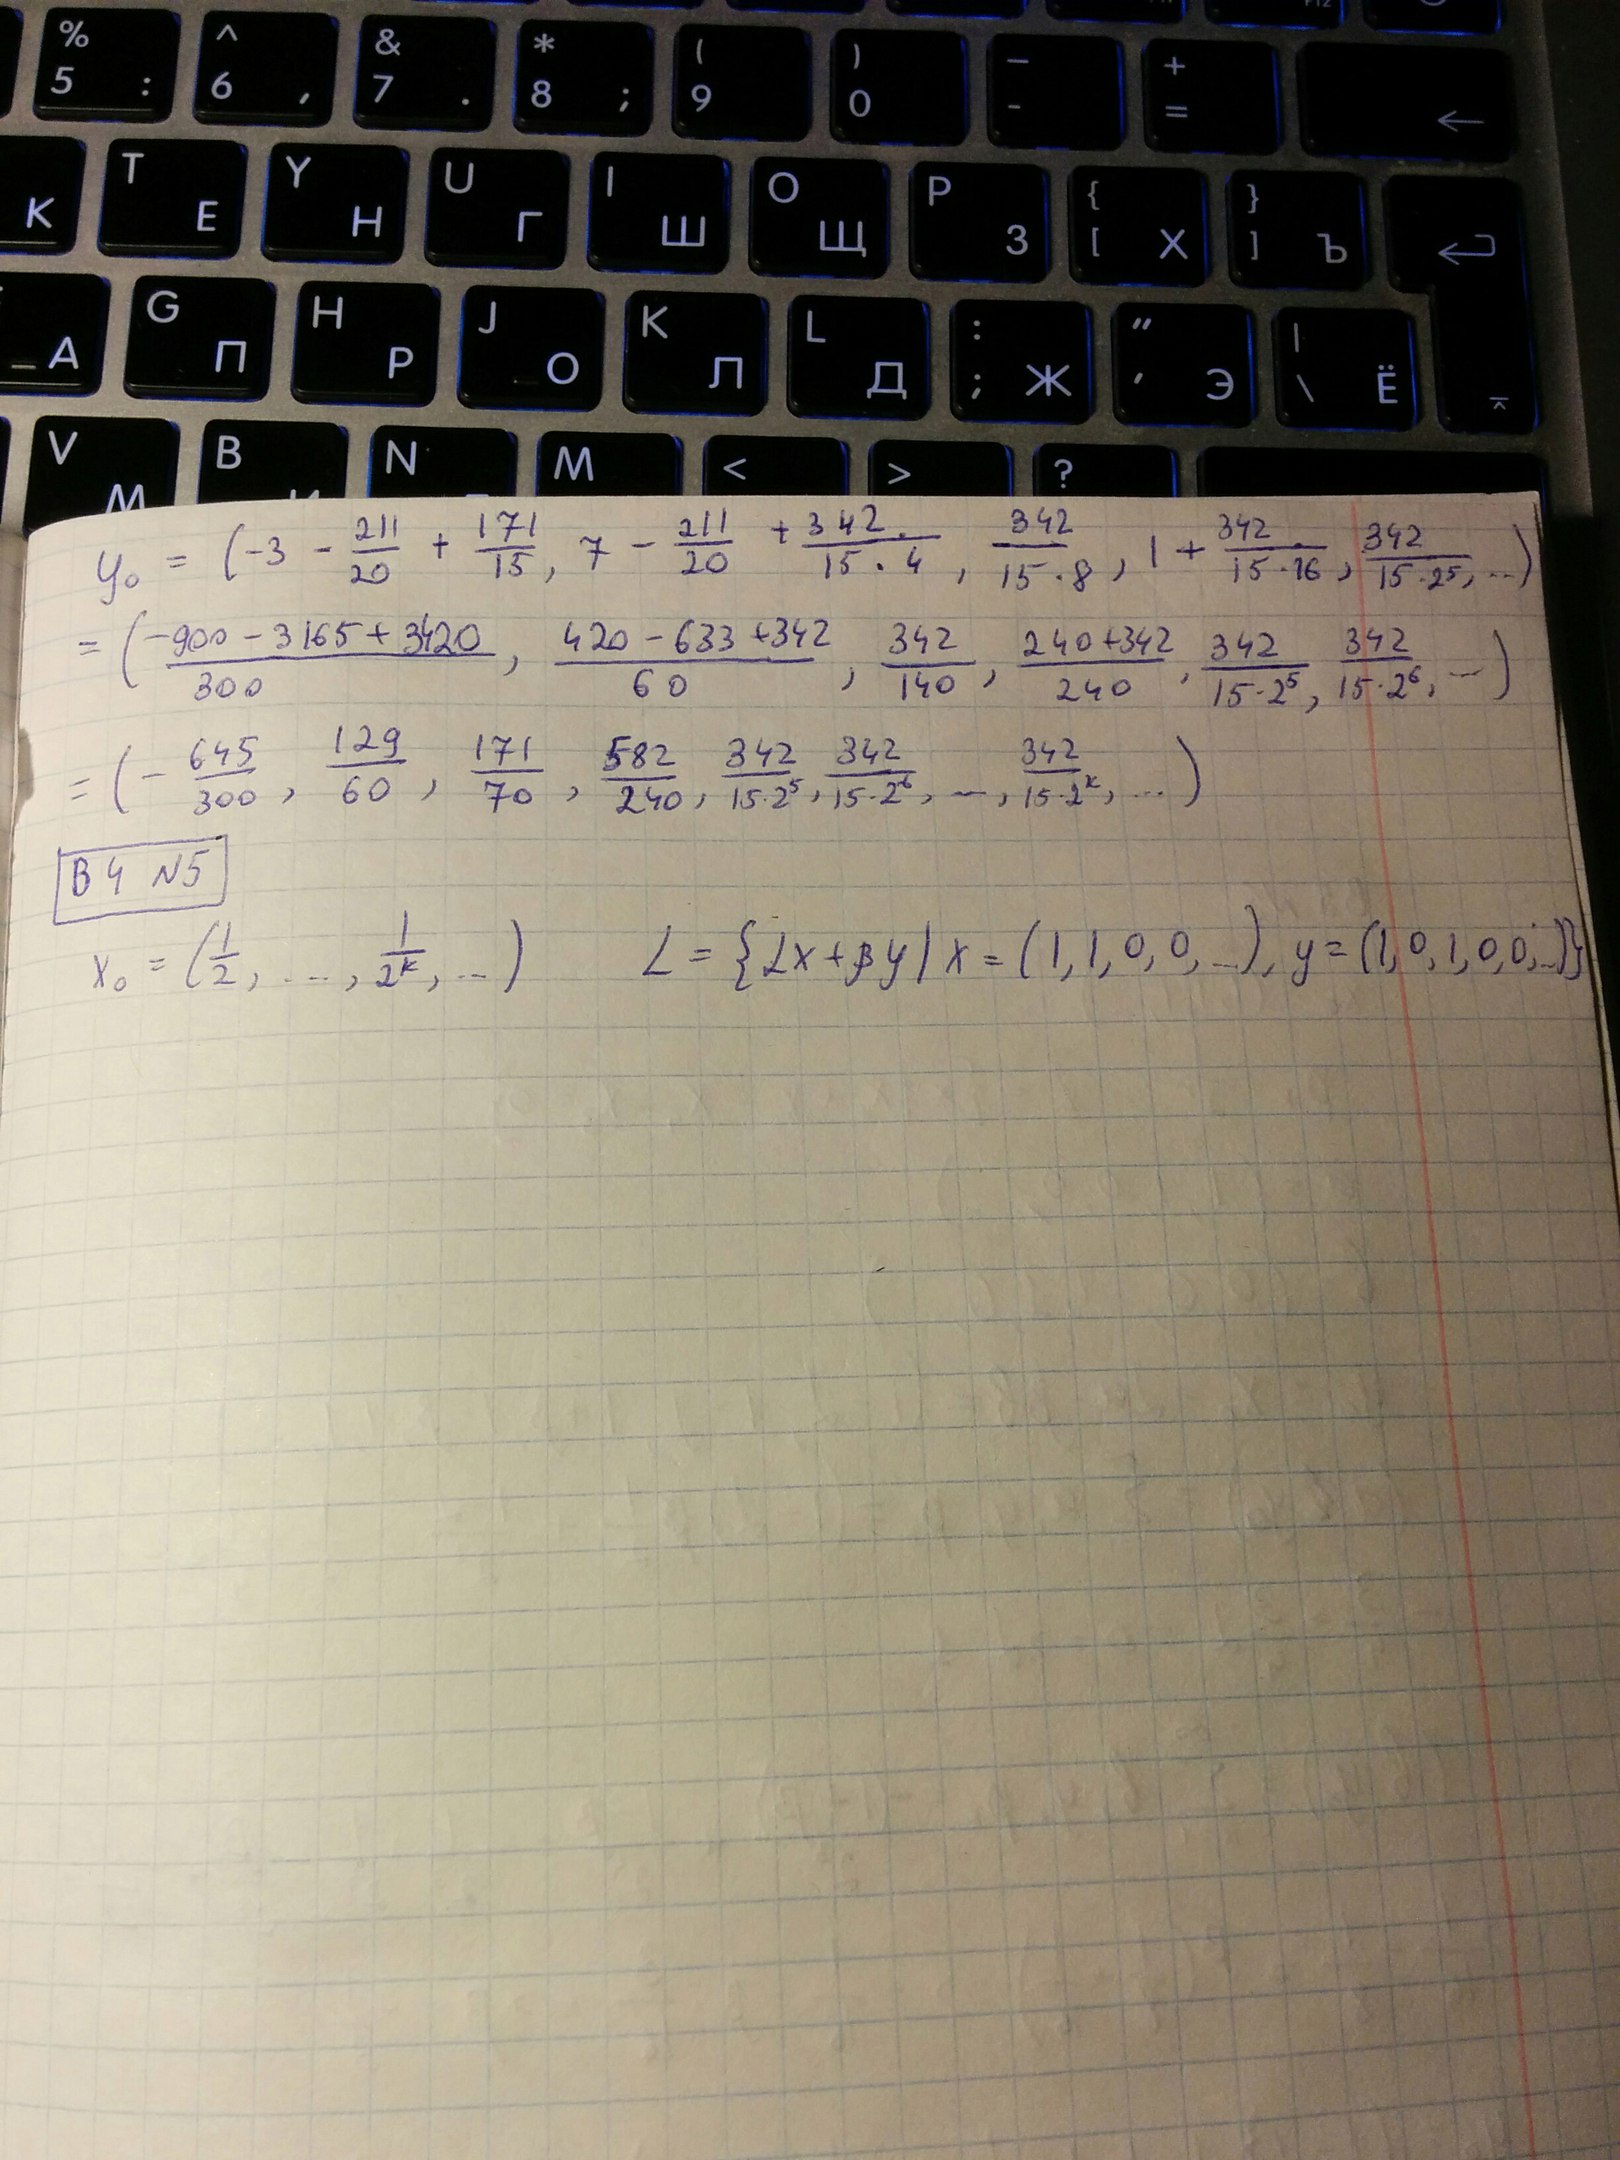 % 5 : ^ 6 , & 7 . * 8 ; ( 9 ) 0 _ - + = ←
К T Е Y Н U Г I Ш O Щ P З { [ Х } ] Ъ
А G П H Р J О K Л L Д : ; Ж " ' Э | \ Ё
V М B N M < > ?
y₀ = (-3 - 211/20 + 171/15, 7 - 211/20 + 342/(15·4), 342/(15·8), 1 + 342/(15·16), 342/(15·2⁵), ...)
= ((-900 - 3165 + 3420)/300, (420 - 633 + 342)/60, 342/140, (240 + 342)/240, 342/(15·2⁵), 342/(15·2⁶), ...)
= (- 645/300, 129/60, 171/70, 582/240, 342/(15·2⁵), 342/(15·2⁶), ..., 342/(15·2ᵏ), ...)
В4 №5
x₀ = (1/2, ..., 1/2ᵏ, ...) L = {αx + βy | x = (1, 1, 0, 0, ...), y = (1, 0, 1, 0, 0, ...)}